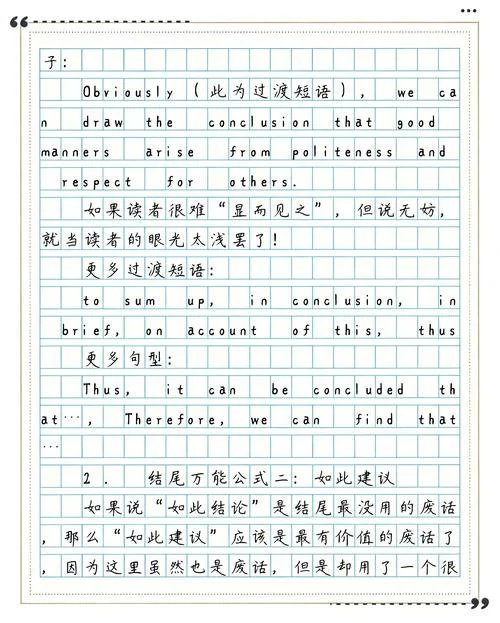 子：
Obviously（此为过渡短语）, we ca
n draw the conclusion that good
manners arise from politeness and
respect for others.
如果读者很难“显而见之”，但说无妨，
就当读者的眼光太浅罢了！
更多过渡短语：
to sum up, in conclusion, in
brief, on account of this, thus
更多句型：
Thus, it can be concluded th
at…, Therefore, we can find that
…
2. 结尾万能公式二：如此建议
如果说“如此结论”是结尾最没用的废话
，那么“如此建议”应该是最有价值的废话了
，因为这里虽然也是废话，但是却用了一个很